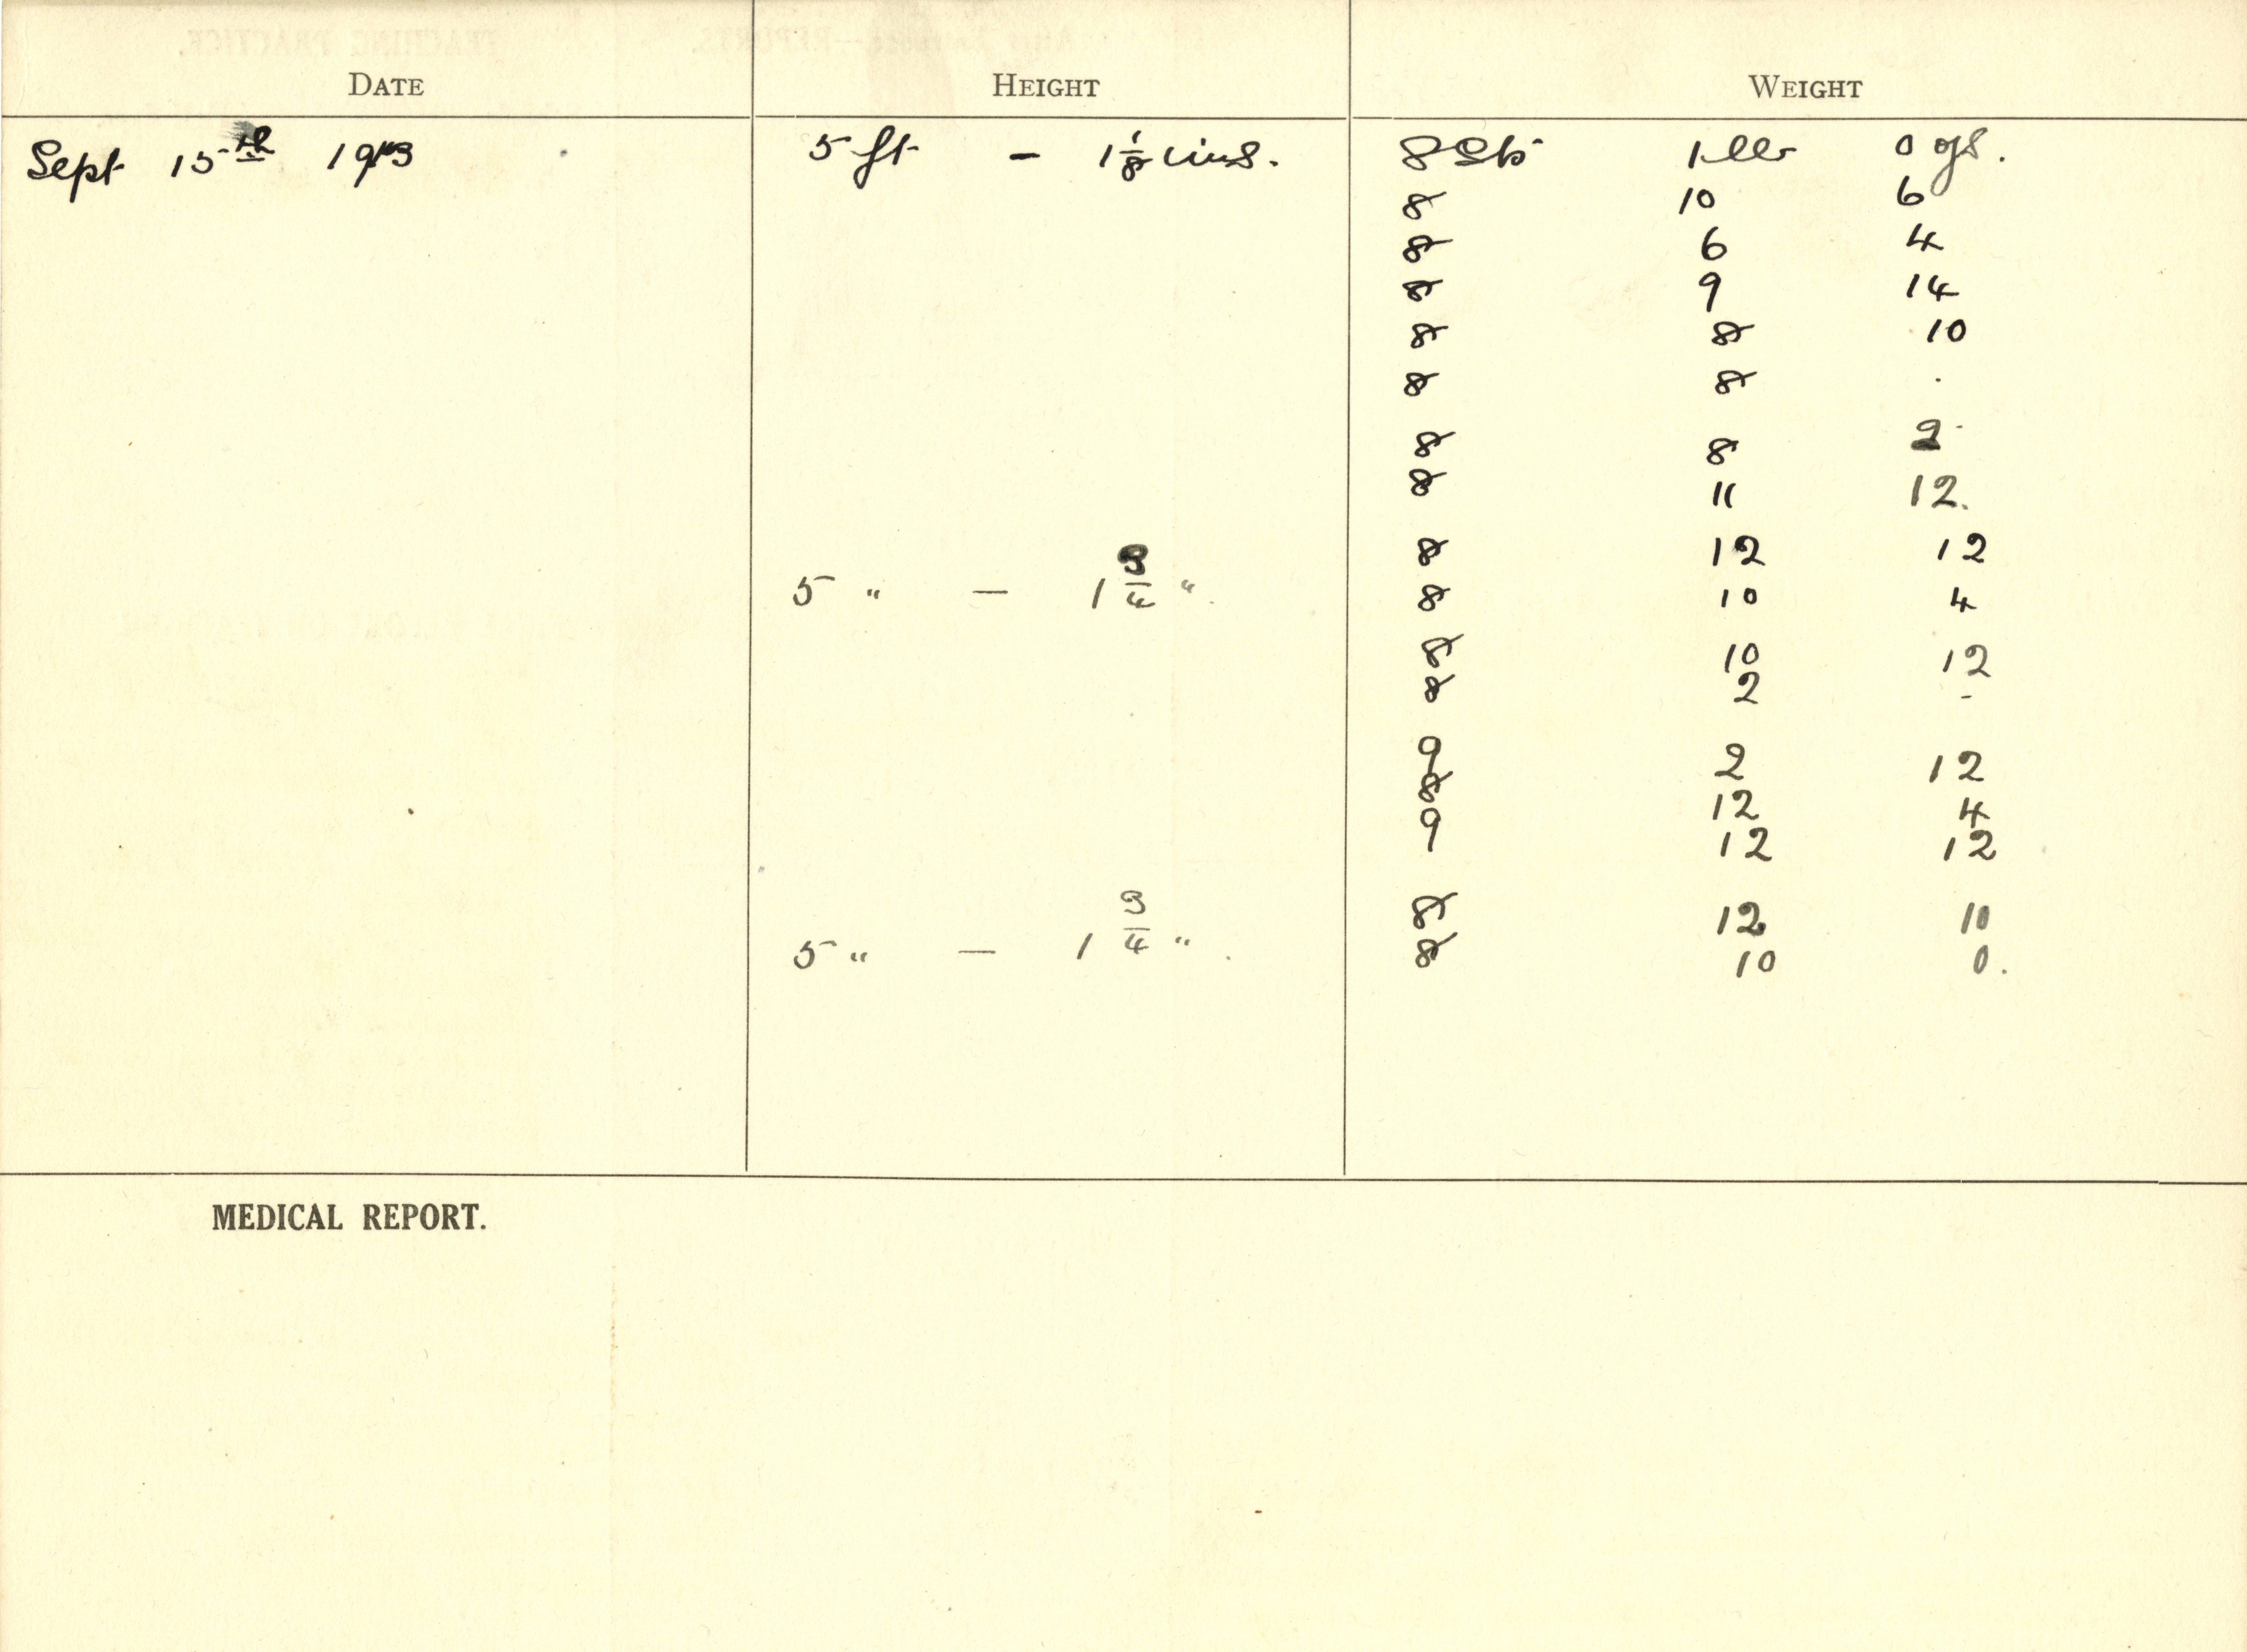 DATE HEIGHT WEIGHT
Sept 15th 1913 5 ft - 1 1/8 ins. 8 sts 1 lb 0 ozs.
8 10 6
8 6 4
8 9 14
8 8 10
8 8 .
8 8 2
8 11 12.
8 12 12
5 " — 1 3/4 ". 8 10 4
8 10 12
8 2 -
9 2 12
8 12 4
9 12 12
8 12 10
5 " — 1 3/4 ". 8 10 0.
MEDICAL REPORT.